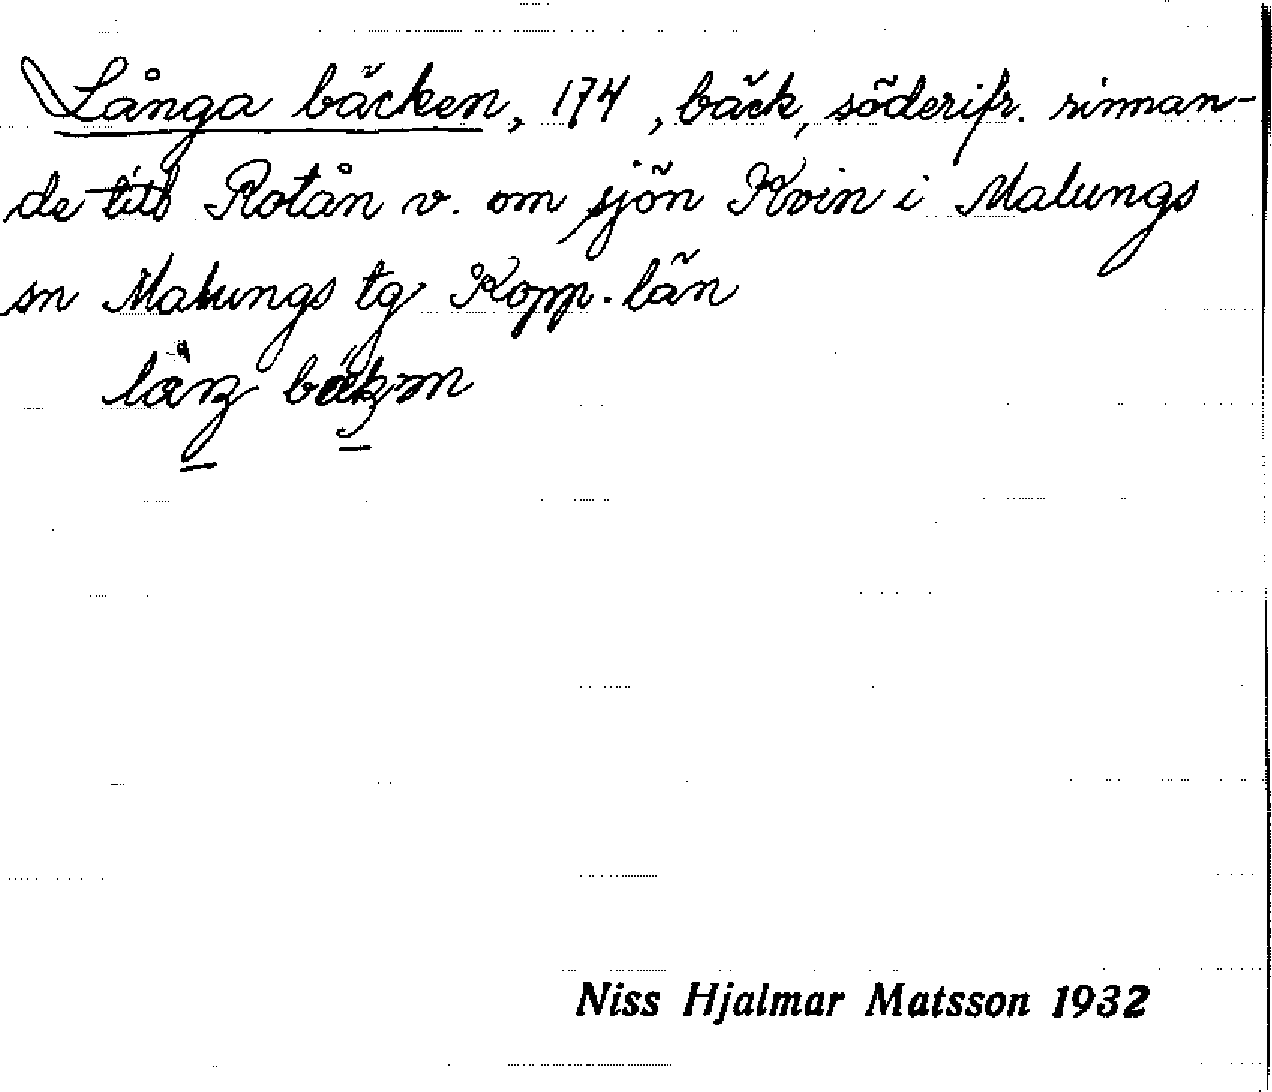 Långa bäcken, 174, bäck, söderifr. rinnan-
de till Rotån v. om sjön Kvin i Malungs
sn Malungs tg Kopp. län
Niss Hjalmar Matsson 1932